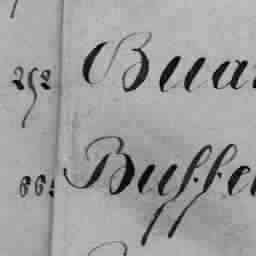 292 Buar
665 Buffe